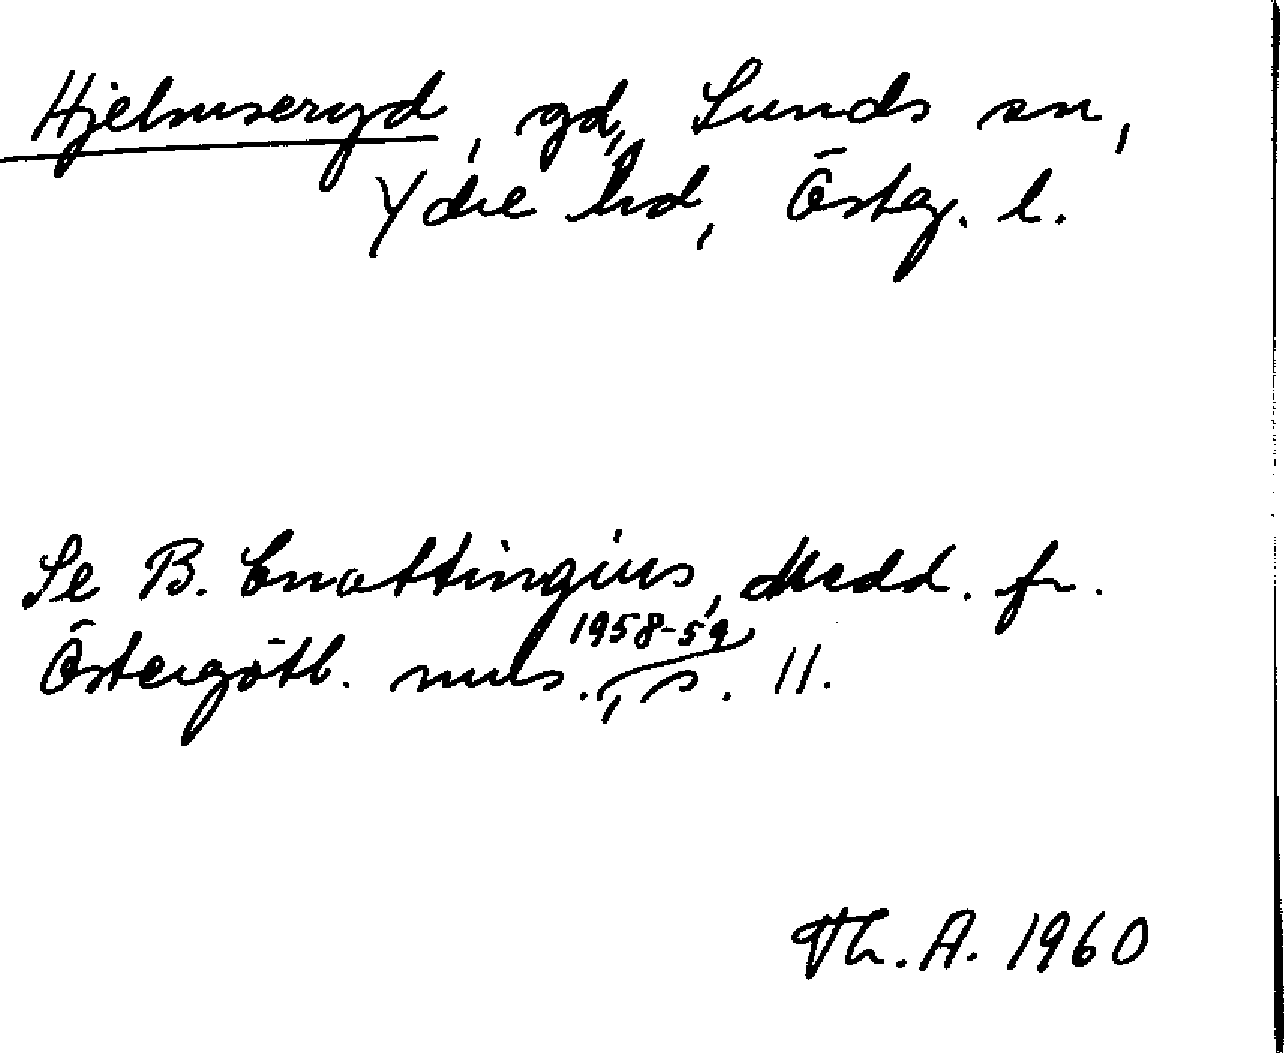 Hjelmseryd, gd, Sunds sn,
Ydre hd, Östeg. l.
Se B. Cnattingius, Medd. fr.
Östergötl. mus. 1958-59, s. 11.
Th. A. 1960